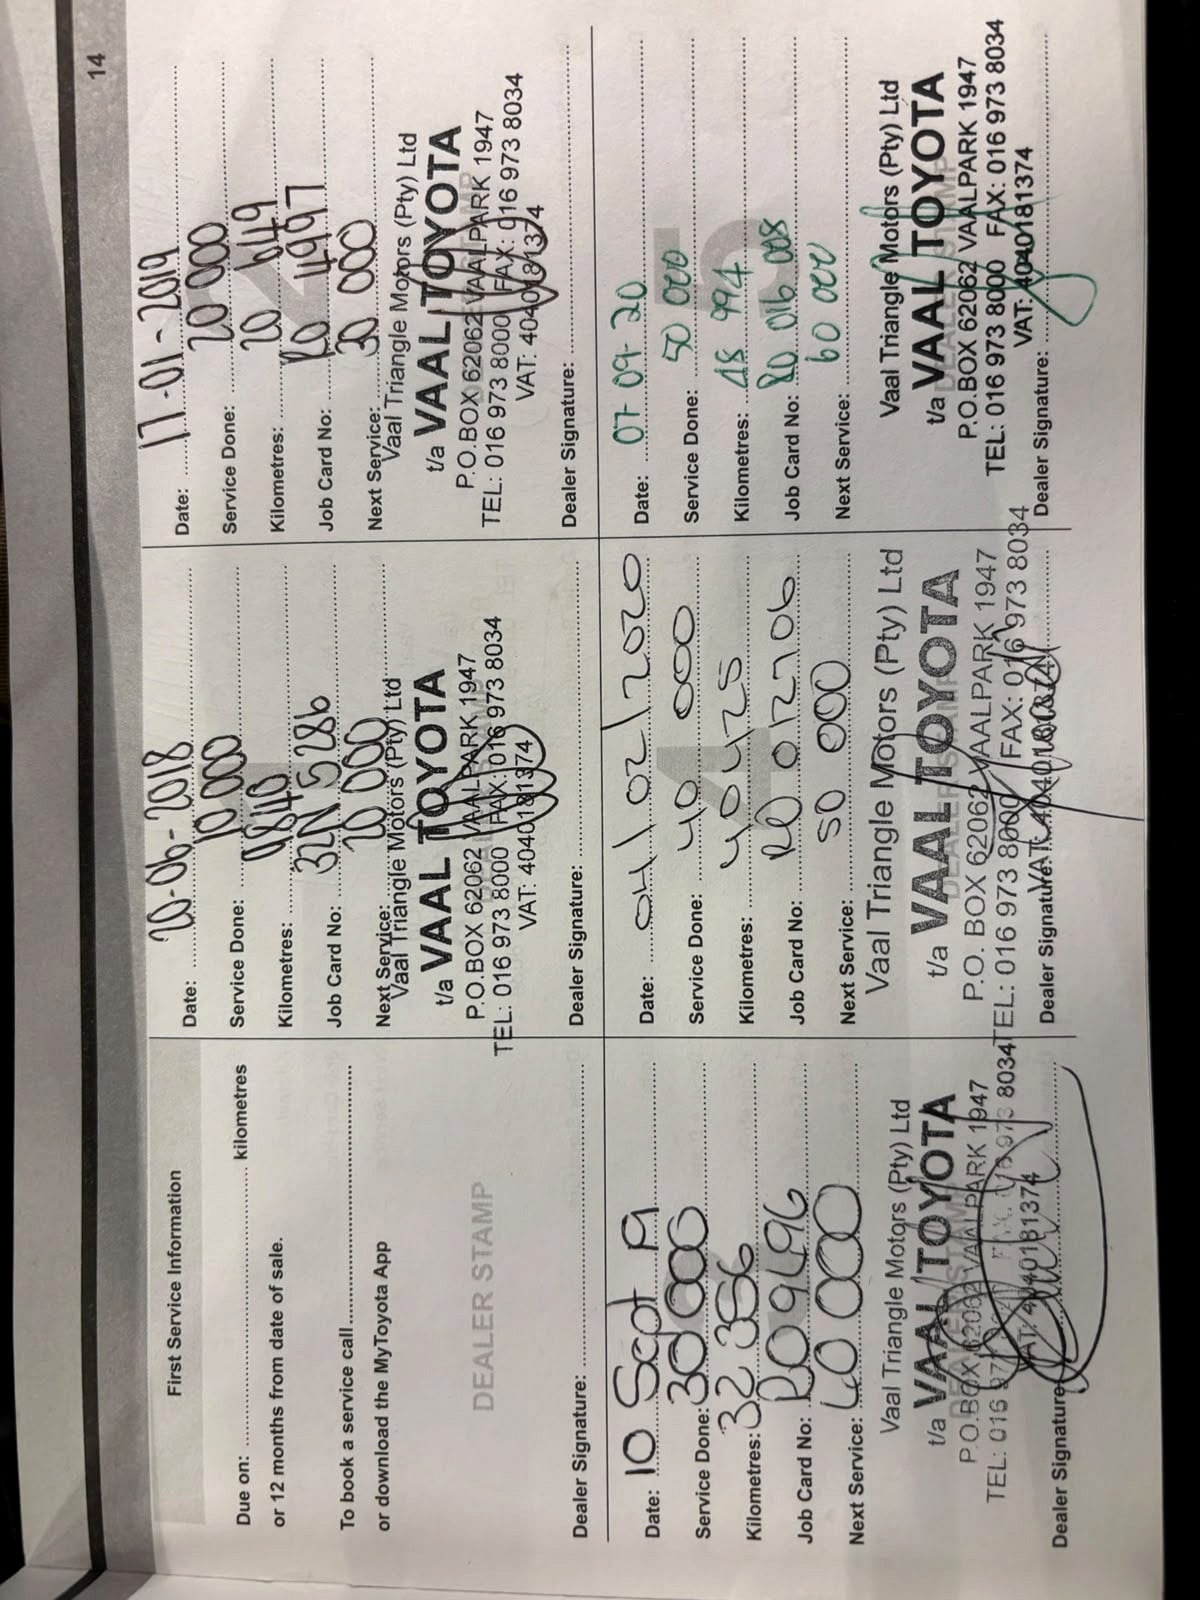 14
First Service Information
Due on: ........ kilometres
or 12 months from date of sale.
To book a service call........
or download the MyToyota App
DEALER STAMP
Dealer Signature:
Date: 20-06-2018
Service Done: 10 000
Kilometres: 9840
Job Card No: 32N 5286
Next Service: 20 000
Vaal Triangle Motors (Pty) Ltd
t/a VAAL TOYOTA
P.O.BOX 62062 VAALPARK 1947
TEL: 016 973 8000 FAX: 016 973 8034
VAT: 4040181374
Dealer Signature:
Date: 17-01-2019
Service Done: 20 000
Kilometres: 20 649
Job Card No: R0 4997
Next Service: 30 000
Vaal Triangle Motors (Pty) Ltd
t/a VAAL TOYOTA
P.O.BOX 62062 VAALPARK 1947
TEL: 016 973 8000 FAX: 016 973 8034
VAT: 4040181374
Dealer Signature:
Date: 10 Sept 19
Service Done: 30 000
Kilometres: 32 356
Job Card No: R09496
Next Service: 40 000
Vaal Triangle Motors (Pty) Ltd
t/a VAAL TOYOTA
P.O.BOX 62062 VAALPARK 1947
TEL: 016 973 8034
VAT: 4040181374
Dealer Signature
Date: 04/02/2020
Service Done: 40 000
Kilometres: 40425
Job Card No: R0 012706
Next Service: 50 000
Vaal Triangle Motors (Pty) Ltd
t/a VAAL TOYOTA
P.O. BOX 62062 VAALPARK 1947
TEL: 016 973 8000 FAX: 016 973 8034
VAT:
Dealer Signature:
Date: 07-09-20
Service Done: 50 000
Kilometres: 48 994
Job Card No: R0 016 008
Next Service: 60 000
Vaal Triangle Motors (Pty) Ltd
t/a VAAL TOYOTA
P.O.BOX 62062 VAALPARK 1947
TEL: 016 973 8000 FAX: 016 973 8034
VAT: 4040181374
Dealer Signature: